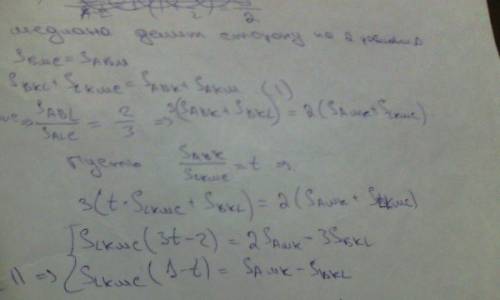 медиана делит сторону на 2 равных
S BMC = S ABM
S BKL + S LKMC = S ABK + S AKM (1)
⇒ S ABL / S ALC = 2/3 ⇒ 3(S ABK + S BKL) = 2(S AMK + S LKMC)
Пусть S ABK / S LKMC = t ⇒
3(t · S LKMC + S BKL) = 2(S AMK + S LKMC)
S LKMC (3t-2) = 2S AMK - 3S BKL
⇒ S LKMC (1-t) = S AMK - S BKL